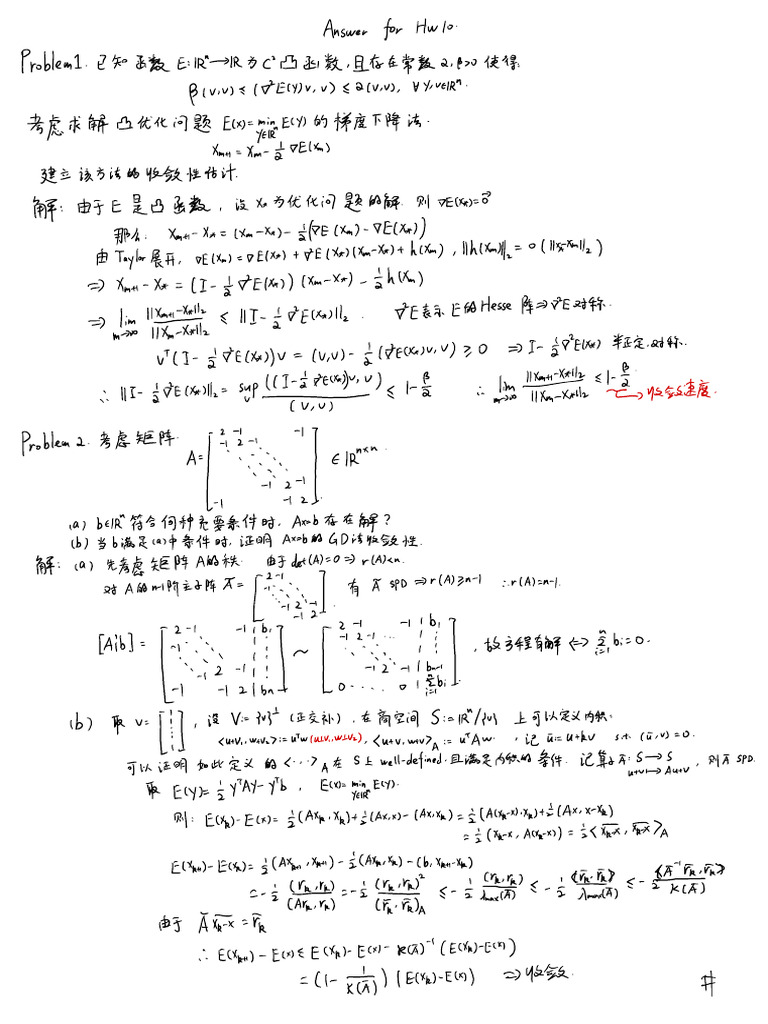 Answer for Hw10.
Problem1. 已知函数 E:ℝⁿ→ℝ 为 C² 凸函数,且存在常数 α,β>0 使得
β(v,v) ≤ (∇²E(y)v, v) ≤ α(v,v), ∀y,v∈ℝⁿ.
考虑求解凸优化问题 E(x)=min_{y∈ℝⁿ} E(y) 的梯度下降法.
x_{m+1} = x_m - 1/α ∇E(x_m)
建立该方法的收敛性估计.
解: 由于 E 是凸函数, 设 x* 为优化问题的解. 则 ∇E(x*)=0⃗
那么. x_{m+1} - x* = (x_m - x*) - 1/α(∇E(x_m) - ∇E(x*))
由 Taylor 展开, ∇E(x_m) = ∇E(x*) + ∇²E(x*)(x_m - x*) + h(x_m), ||h(x_m)||₂ = o(||x* - x_m||₂)
⇒ x_{m+1} - x* = (I - 1/α ∇²E(x*)) (x_m - x*) - 1/α h(x_m)
⇒ lim_{m→∞} ||x_{m+1} - x*||₂ / ||x_m - x*||₂ ≤ ||I - 1/α ∇²E(x*)||₂. ∇²E表示 E的 Hesse 阵 ⇒ ∇²E对称.
vᵀ(I - 1/α ∇²E(x*))v = (v,v) - 1/α (∇²E(x*)v, v) ≥ 0 ⇒ I - 1/α ∇²E(x*) 半正定.对称.
∴ ||I - 1/α ∇²E(x*)||₂ = sup_v ((I - 1/α ∇²E(x*))v, v) / (v,v) ≤ 1 - β/α ∴ lim_{m→∞} ||x_{m+1} - x*||₂ / ||x_m - x*||₂ ≤ 1 - β/α → 收敛速度.
Problem 2. 考虑矩阵.
A = [2 -1 -1; -1 2 -1; ⋱ ⋱ ⋱; -1 2 -1; -1 -1 2] ∈ℝ^{n×n}
(a) b∈ℝⁿ 符合何种充要条件时, Ax=b 存在解?
(b) 当b满足(a)中条件时, 证明 Ax=b 的 GD法收敛性.
解: (a) 先考虑矩阵 A的秩. 由于 det(A)=0 ⇒ r(A)<n.
对 A 的n-1阶主子阵 Ā = [2 -1; -1 ⋱ ⋱; ⋱ -1 2 -1; -1 2] 有 Ā SPD ⇒ r(A)≥n-1 ∴ r(A)=n-1.
[A|b] = [2 -1 -1 | b₁; -1 ⋱ ⋮; -1 2 -1; -1 -1 2 | bₙ] ~ [2 -1 -1 | b₁; -1 2 -1 ⋮; -1 2 -1 | b_{n-1}; 0 ⋯ 0 | Σ_{i=1}^n b_i], 故方程有解 ⇔ Σ_{i=1}^n b_i=0.
(b) 取 v=[1 ⋮ 1], 设 V:= {v}^⊥ (正交补). 在商空间 S:=ℝⁿ/{v} 上可以定义内积:
<u+v, w+v>:= uᵀw (u⊥v, w⊥v), <u+v, w+v>_A := uᵀAw. , 记 ū:= u+kv s.t. (ū,v)=0.
可以证明 如此定义的 <·,·>_A 在 S上 well-defined.且满足内积的条件. 记算子 Ā: S→S u+v↦Au+v, 则 Ā SPD.
取 E(y)=½yᵀAy-yᵀb, E(x)=min_{y∈ℝⁿ}E(y).
则: E(x_k)-E(x) = ½(Ax_k, x_k)+½(Ax,x)-(Ax,x_k) = ½(A(x_k-x),x_k)+½(Ax, x-x_k)
= ½(x_k-x, A(x_k-x)) = ½<x̄_k-x̄, x̄_k-x̄>_A
E(x_{k+1})-E(x_k) = ½(Ax_{k+1}, x_{k+1})-½(Ax_k, x_k)-(b, x_{k+1}-x_k)
= -½ (r_k, r_k)/(Ar_k, r_k) = -½ (r_k, r_k)²/(r̄_k, r̄_k)_A ≤ -½ (r_k, r_k)/λmax(Ā) ≤ -½ (r̄_k, r̄_k)/λmax(Ā) ≤ -½ <Ā⁻¹r̄_k, r̄_k>/K(Ā)
由于 Ā x̄_k-x̄ = r̄_k
∴ E(x_{k+1}) - E(x) ≤ E(x_k) - E(x) - K(Ā)⁻¹ (E(x_k)-E(x))
= (1 - 1/K(Ā)) (E(x_k)-E(x)) ⇒ 收敛. #